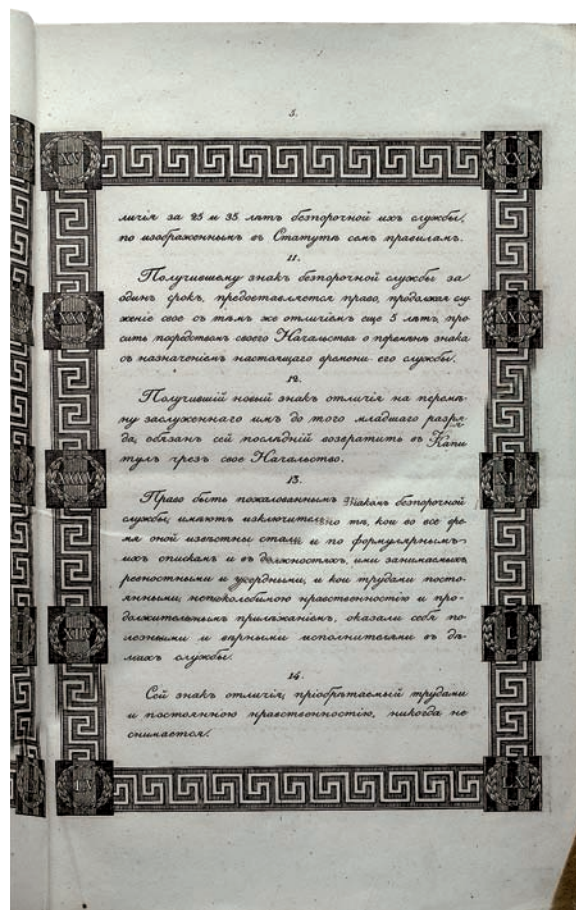 5.
XV
XX
личія за 25 и 35 лѣтъ безпорочной ихъ службы,
по изображеннымъ въ Статутѣ семъ правиламъ.
11.
Получившему знакъ безпорочной службы за
одинъ срокъ, предоставляется право, продолжая слу
женіе свое съ тѣмъ же отличіемъ еще 5 лѣтъ, про
сить посредствомъ своего Начальства о перемѣнѣ знака
съ назначеніемъ настоящаго времени его службы.
12.
Получившій новый знакъ отличія на перемѣ
ну заслуженнаго имъ до того младшаго разря
да, обязанъ сей послѣдній возвратить въ Капи
тулъ чрезъ свое Начальство.
13.
Право быть пожалованнымъ Знакомъ безпорочной
службы, имѣютъ исключительно тѣ, кои во все вре
мя оной извѣстны стали и по формулярнымъ
ихъ спискамъ и въ должностяхъ, ими занимаемыхъ,
ревностными и усердными, и кои трудами посто-
янными, непоколебимою нравственностію и про-
должительнымъ прилѣжаніемъ, оказали себя по
лезными и вѣрными исполнителями въ дѣ
лахъ службы.
14.
Сей знакъ отличія, пріобрѣтаемый трудами
и постоянною нравственностію, никогда не
снимается.
L
LX